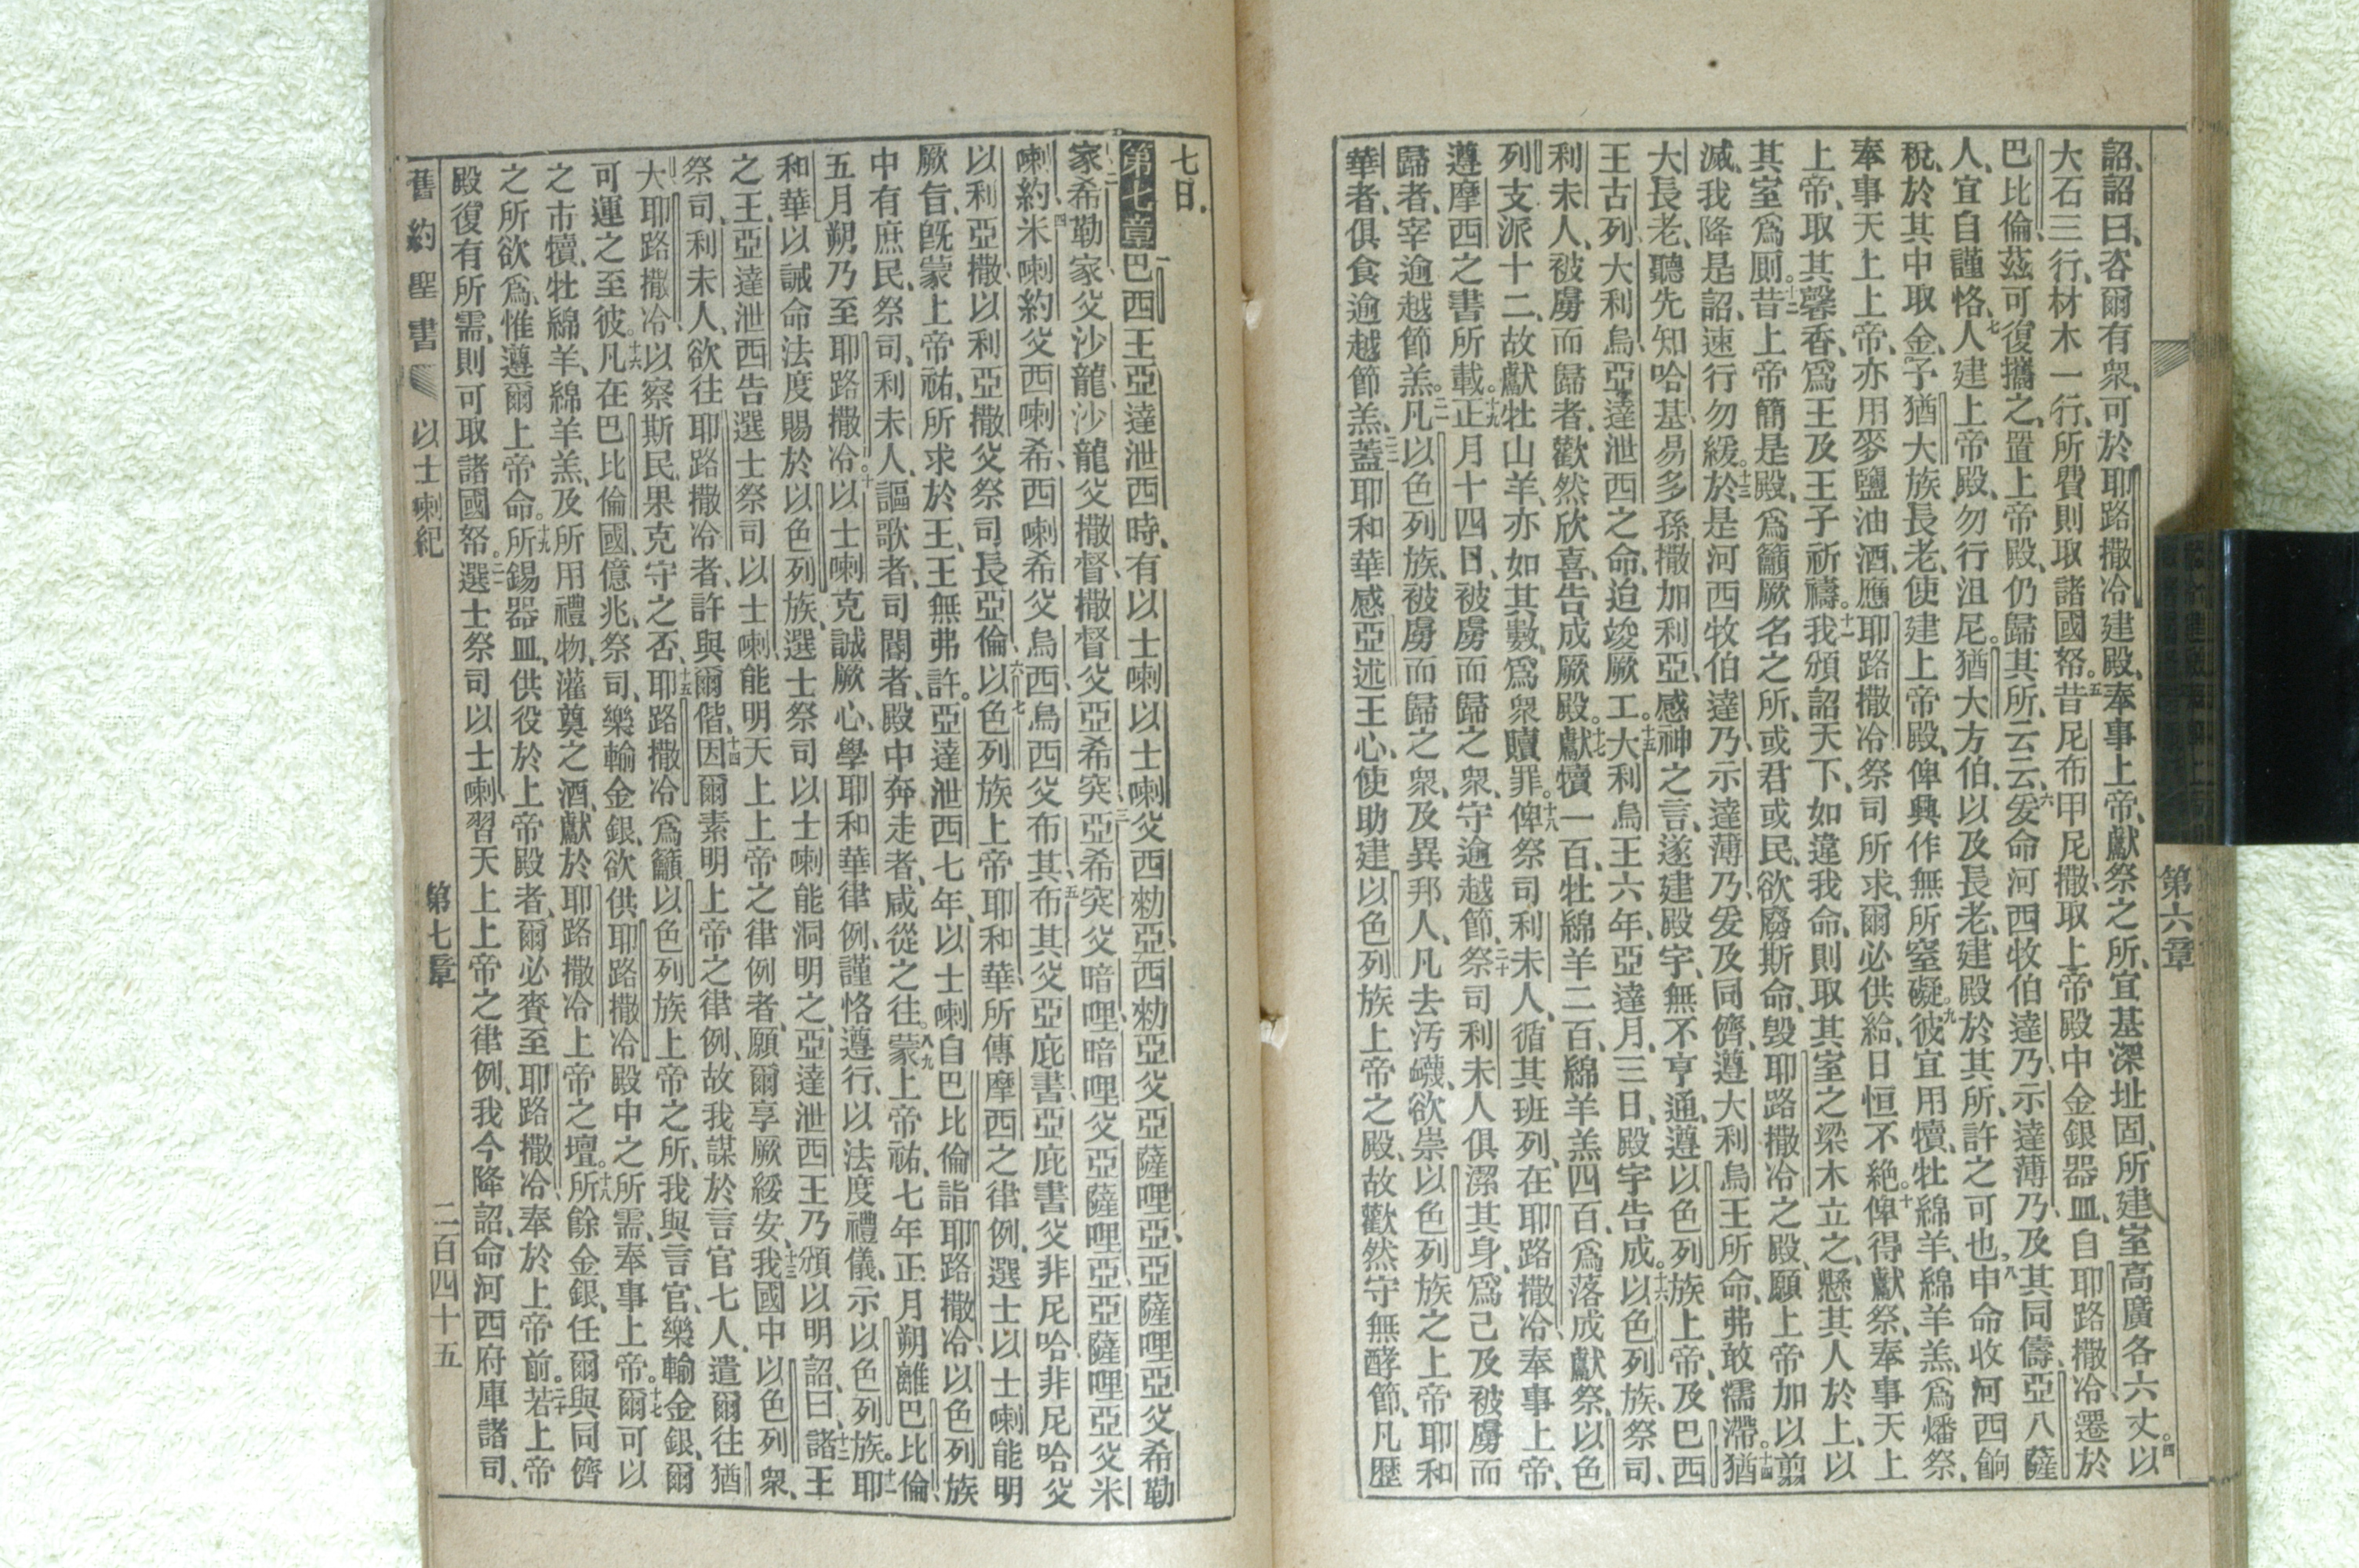 詔、詔曰、咨爾有衆、可於耶路撒冷建殿、奉事上帝、獻祭之所、宜基深址固、所建室高廣各六丈、四以
大石三行、材木一行、所費則取諸國帑。五昔尼布甲尼撒、取上帝殿中金銀器皿、自耶路撒冷遷於
巴比倫、茲可復攜之、置上帝殿、仍歸其所、云云、六爰命河西牧伯達乃、示達薄乃、及其同儔、亞八薩
人、宜自謹恪、七人建上帝殿、勿行沮尼。猶大方伯、以及長老、建殿於其所、許之可也、八申命收河西餉
稅、於其中取金、予猶大族長老、使建上帝殿、俾興作無所窒礙。九彼宜用犢、牡綿羊、綿羊羔、爲燔祭、
奉事天上上帝、亦用麥鹽油酒、應耶路撒冷祭司所求、爾必供給、日恒不絶。十俾得獻祭、奉事天上
上帝、取其馨香、爲王及王子祈禱。十一我頒詔天下、如違我命、則取其室之梁木立之、懸其人於上、以
其室爲厠。十二昔上帝簡是殿、爲籲厥名之所、或君或民、欲廢斯命、毀耶路撒冷之殿、願上帝加以翦
滅、我降是詔、速行勿緩。十三於是河西牧伯達乃、示達薄乃、爰及同儕、遵大利烏王所命、弗敢濡滯。十四猶
大長老、聽先知哈基、易多孫撒加利亞、感神之言、遂建殿宇、無不亨通、遵以色列族上帝、及巴西
王古列、大利烏、亞達泄西之命、迫竣厥工。十五大利烏王六年、亞達月、三日、殿宇告成。十六以色列族、祭司、
利未人、被虜而歸者、歡然欣喜、告成厥殿。十七獻犢一百、牡綿羊二百、綿羊羔四百、爲落成獻祭、以色
列支派十二、故獻牡山羊、亦如其數、爲衆贖罪。十八俾祭司利未人、循其班列、在耶路撒冷奉事上帝、
遵摩西之書所載。十九正月十四日、被虜而歸之衆、守逾越節、二十祭司利未人俱潔其身、爲己及被虜而
歸者、宰逾越節羔。二一凡以色列族、被虜而歸之衆、及異邦人、凡去汚衊、欲崇以色列族之上帝耶和
華者、俱食逾越節羔、二二蓋耶和華感亞述王心、使助建以色列族上帝之殿、故歡然守無酵節、凡歷
第六章
七日、
第七章一巴西王亞達泄西時、有以士喇、以士喇父西勑亞、西勑亞父亞薩哩亞、亞薩哩亞父希勒
家、二希勒家父沙龍、沙龍父撒督、撒督父亞希突、三亞希突父暗哩、暗哩父亞薩哩亞、亞薩哩亞父米
喇約、四米喇約父西喇希、西喇希父烏西、烏西父布其、五布其父亞庇書、亞庇書父非尼哈、非尼哈父
以利亞撒、以利亞撒父祭司長亞倫、六七以色列族上帝耶和華、所傳摩西之律例、選士以士喇能明
厥旨、旣蒙上帝祐、所求於王、王無弗許。亞達泄西七年、以士喇自巴比倫詣耶路撒冷、以色列族
中有庶民、祭司、利未人、謳歌者、司閽者、殿中奔走者、咸從之往。八九蒙上帝祐、七年正月朔、離巴比倫、
五月朔、乃至耶路撒冷。十以士喇克誠厥心、學耶和華律例、謹恪遵行、以法度禮儀、示以色列族。十一耶
和華以誡命法度賜於以色列族、選士祭司以士喇能洞明之、亞達泄西王乃頒以明詔、曰、十二諸王
之王、亞達泄西告選士祭司以士喇、能明天上上帝之律例者、願爾享厥綏安、十三我國中以色列衆、
祭司、利未人、欲往耶路撒冷者、許與爾偕、十四因爾素明上帝之律例、故我謀於言官七人、遣爾往猶
大、耶路撒冷、以察斯民、果克守之否、十五耶路撒冷爲籲以色列族上帝之所、我與言官、樂輸金銀、爾
可運之至彼。十六凡在巴比倫國、億兆、祭司、樂輸金銀、欲供耶路撒冷殿中之所需、奉事上帝。十七爾可以
之市犢、牡綿羊、綿羊羔、及所用禮物、灌奠之酒、獻於耶路撒冷上帝之壇。十八所餘金銀、任爾與同儕
之所欲爲、惟遵爾上帝命。十九所錫器皿、供役於上帝殿者、爾必賫至耶路撒冷、奉於上帝前。二十若上帝
殿復有所需、則可取諸國帑。二一選士祭司以士喇、習天上上帝之律例、我今降詔、命河西府庫諸司、
舊約聖書 以士喇紀 第七章 二百四十五